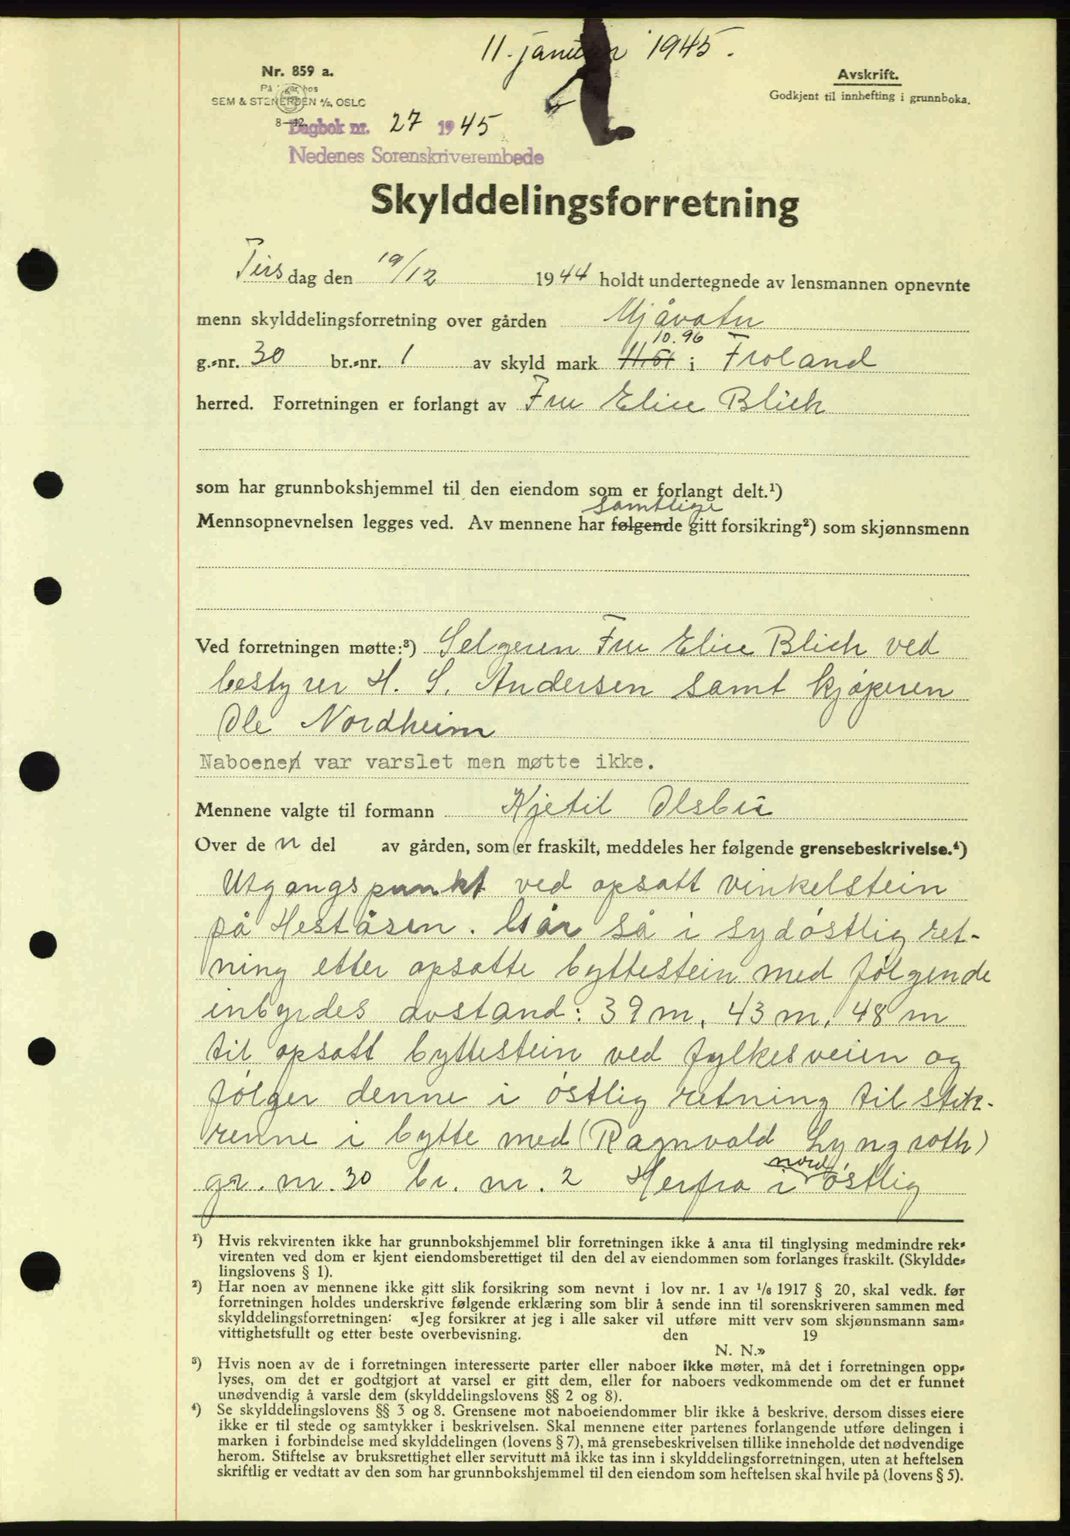 11. januar 1945.
Nr. 859 a.
Avskrift.
På hos
Godkjent til innhefting i grunnboka.
SEM & STENERSEN A/S, OSLO
8—42.
Dagbok nr. 27 1945
Nedenes Sorenskriverembede
Skylddelingsforretning
Tirsdag den 19/12 1944 holdt undertegnede av lensmannen opnevnte
menn skylddelingsforretning over gården Mjåvatn
10.96
g.-nr. 30 br.-nr. 1 av skyld mark 11.61 i Froland
herred. Forretningen er forlangt av Fru Elise Blich
som har grunnbokshjemmel til den eiendom som er forlangt delt.¹)
samtlige
Mennsopnevnelsen legges ved. Av mennene har følgende gitt forsikring²) som skjønnsmenn
Ved forretningen møtte:³) Selgeren Fru Elise Blich ved
bestyrer H. S. Andersen samt kjøperen
Ole Nordheim
Naboene var varslet men møtte ikke.
Mennene valgte til formann Kjetil Olsbu
Over den del av gården, som er fraskilt, meddeles her følgende grensebeskrivelse.⁴)
Utgangspunkt ved opsatt vinkelstein
på Heståsen. Går så i sydøstlig ret-
ning etter opsatte byttestein med følgende
inbyrdes avstand: 39 m, 43 m, 48 m
til opsatt byttestein ved fylkesveien og
følger denne i østlig retning til stik-
renne i bytte med (Ragnvald Lyngroth)
gr. nr. 30 br. nr. 2 Herfra i nordøstlig
¹) Hvis rekvirenten ikke har grunnbokshjemmel blir forretningen ikke å anta til tinglysing medmindre rek-
virenten ved dom er kjent eiendomsberettiget til den del av eiendommen som forlanges fraskilt. (Skyldde-
lingslovens § 1).
²) Har noen av mennene ikke gitt slik forsikring som nevnt i lov nr. 1 av 1/8 1917 § 20, skal vedk. før
forretningen holdes underskrive følgende erklæring som blir å sende inn til sorenskriveren sammen med
skylddelingsforretningen: «Jeg forsikrer at jeg i alle saker vil utføre mitt verv som skjønnsmann sam-
vittighetsfullt og etter beste overbevisning. den 19
N. N.»
³) Hvis noen av de i forretningen interesserte parter eller naboer ikke møter, må det i forretningen opp-
lyses, om det er godtgjort at varsel er gitt dem, eller for naboers vedkommende om det er funnet
unødvendig å varsle dem (skylddelingslovens §§ 2 og 8).
⁴) Se skylddelingslovens §§ 3 og 8. Grensene mot naboeiendommer blir ikke å beskrive, dersom disses eiere
ikke er til stede og samtykker i beskrivelsen. Skal mennene etter partenes forlangende utføre delingen i
marken i forbindelse med skylddelingen (lovens § 7), må grensebeskrivelsen tillike inneholde det nødvendige
herom. Stiftelse av bruksrettighet eller servitutt må ikke tas inn i skylddelingsforretningen, uten at heftelsen
skriftlig er vedtatt av den som har grunnbokshjemmel til den eiendom som heftelsen skal hvile på (lovens § 5).